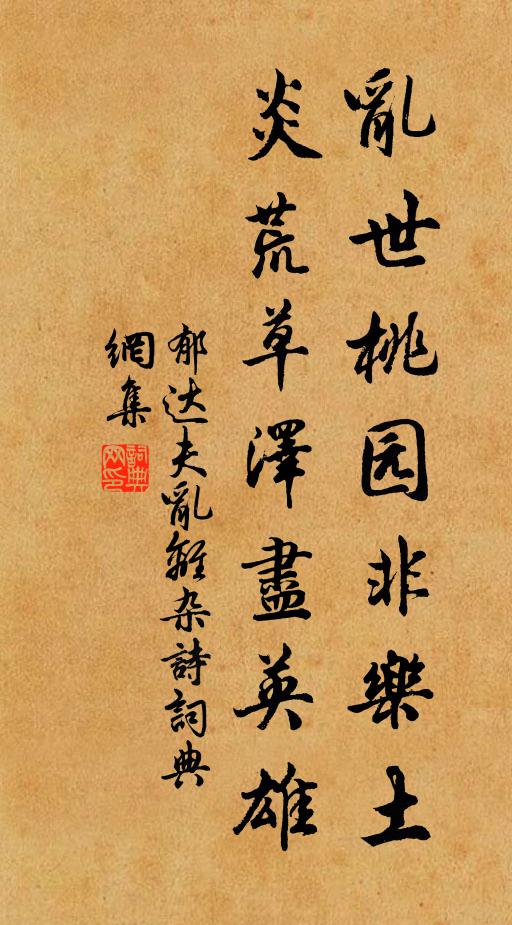 亂世桃园非樂土
炎荒草澤盡英雄
郁达夫亂離杂詩詞典
網集
詞典
网印